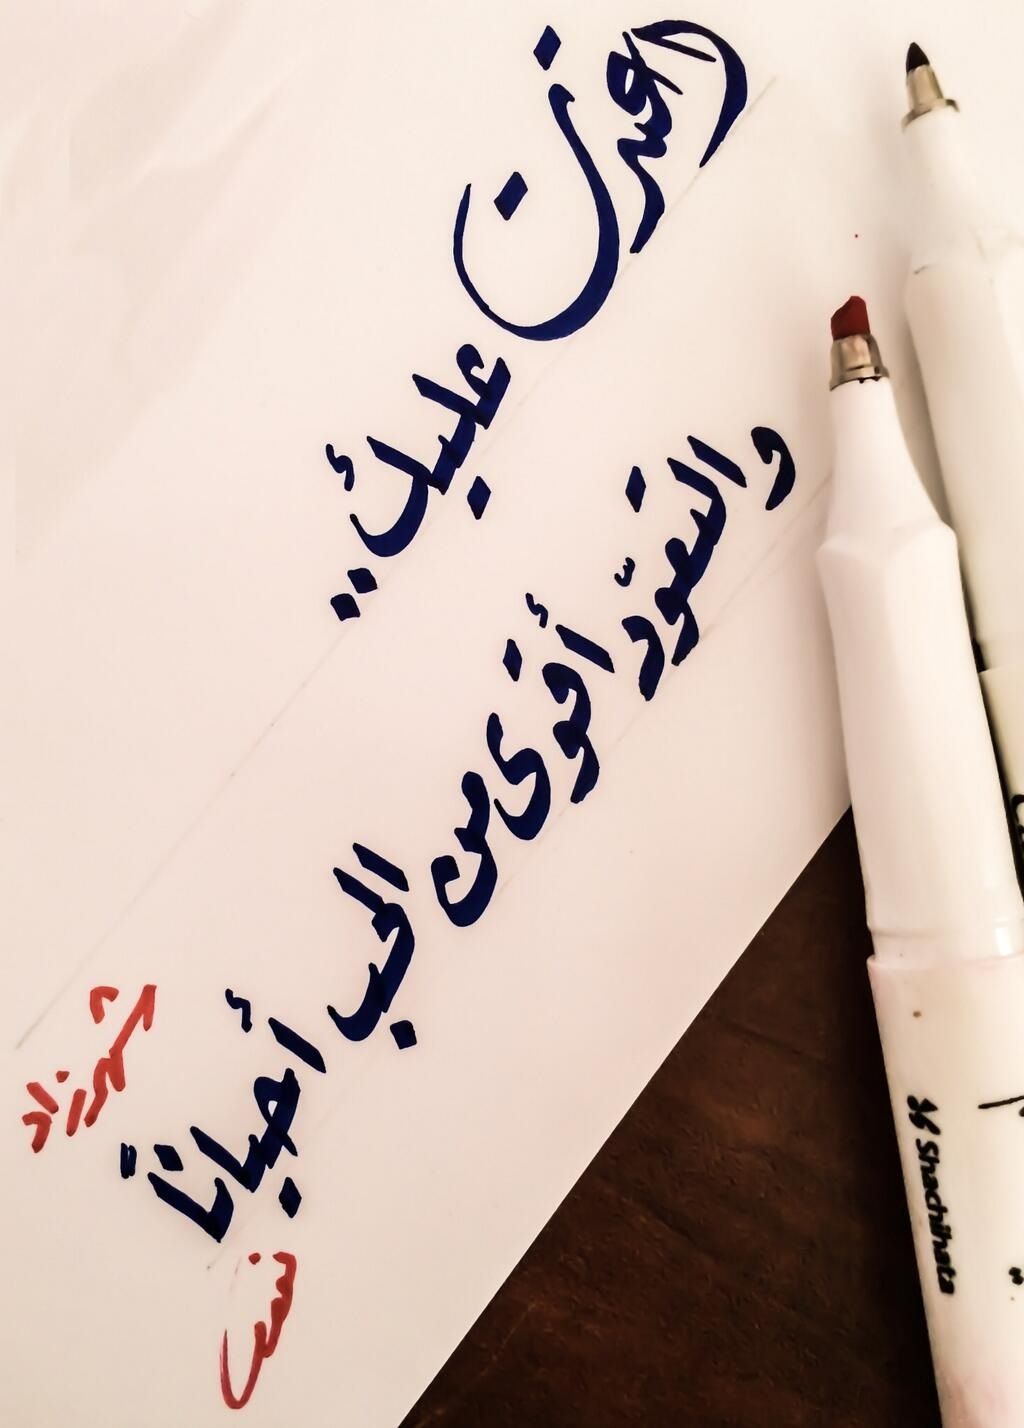 عليك..
والتعوّد أقوى من الحب أحياناً
شهرزاد
Shachihata